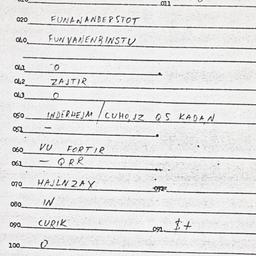 011
020 FUNANANDERSTOT
040 FUNVANENBINSTU
041 O
042 ZAJTIR
043 O
050 INDERHEJM / CUHOJZ QS KADAN
051 —
060 VU FORTIR
061 — QRR
070 HAJLNZAY
080 IN
090 CURIK 091 $+
100 O